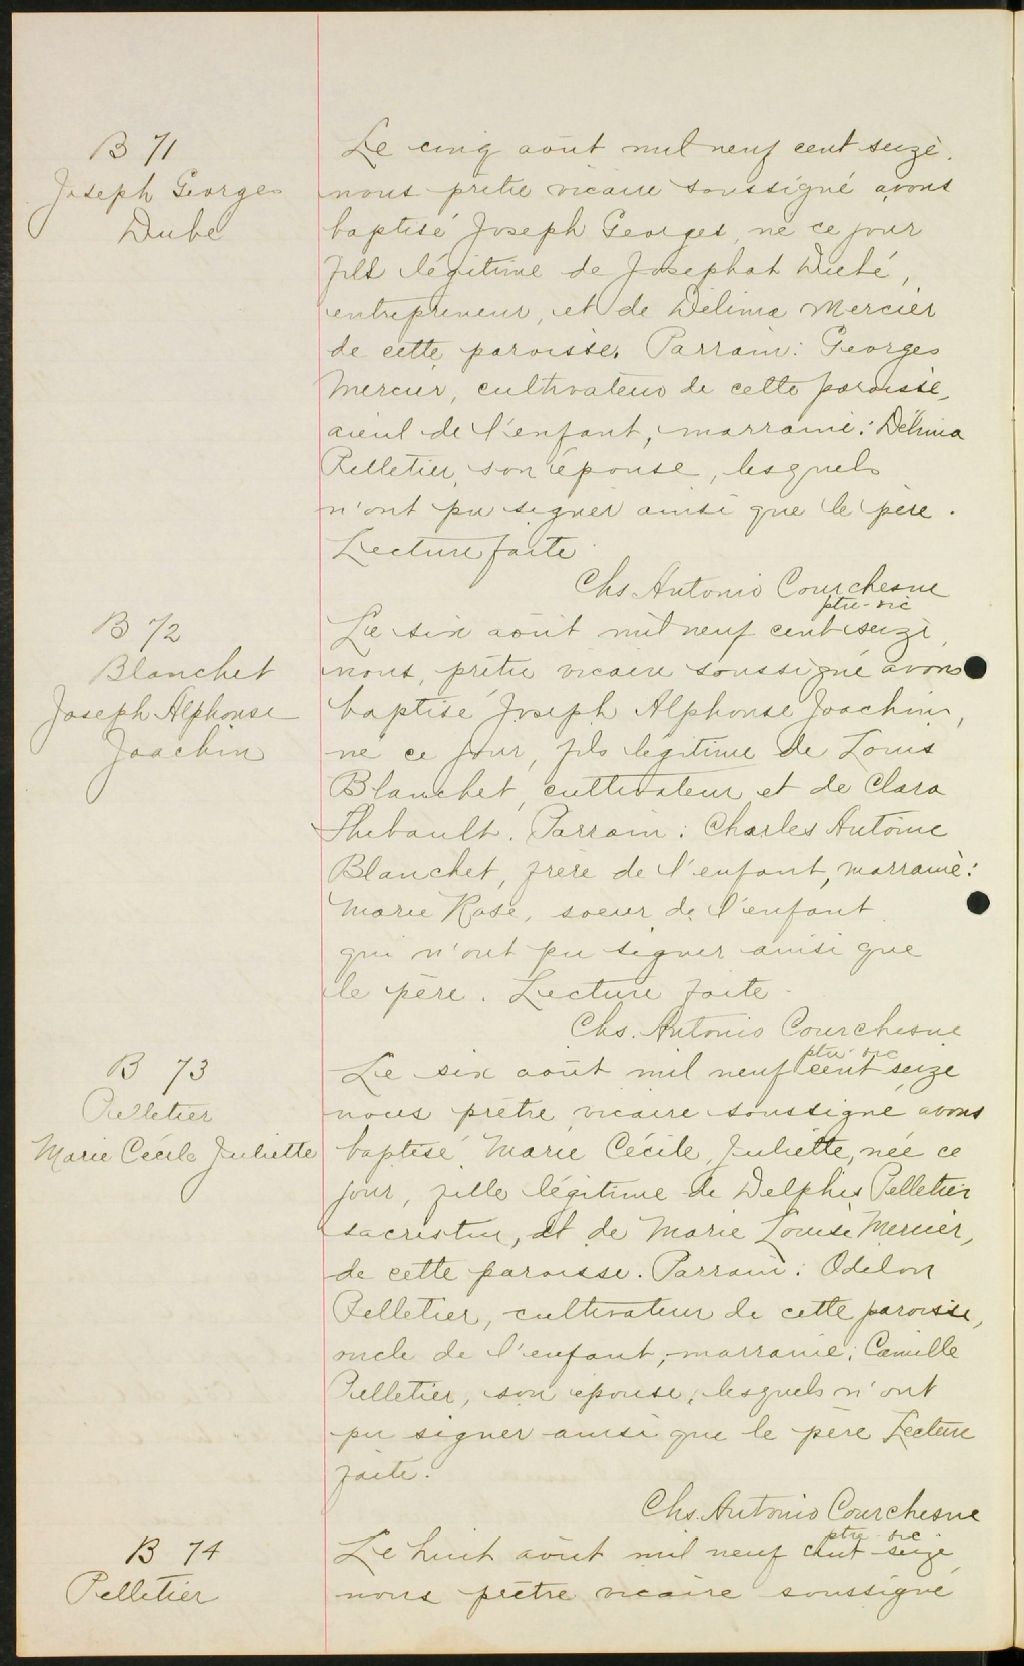 B 71
Joseph Georges
Dube
Le cinq août mil neuf cent seize,
nous prêtre vicaire soussigné avons
baptisé Joseph Georges, né ce jour
fils légitime de Josephat Dubé,
entrepreneur, et de Délima Mercier
de cette paroisse. Parrain: Georges
Mercier, cultivateur de cette paroisse,
aieul de l'enfant, marraine: Délima
Pelletier, son épouse, lesquels
n'ont pu signer ainsi que le père.
Lecture faite.
Chs Antonio Courchesne
ptre-vic
B 72
Blanchet
Joseph Alphonse
Joachin
Le six août mil neuf cent seize,
nous, prêtre vicaire soussigné avons
baptisé Joseph Alphonse Joachim,
né ce jour, fils légitime de Louis
Blanchet, cultivateur et de Clara
Thibault. Parrain: Charles Antoine
Blanchet, frère de l'enfant, marraine:
Marie Rose, soeur de l'enfant
qui n'ont pu signer ainsi que
le père. Lecture faite.
Chs. Antonio Courchesne
ptre-vic
B 73
Pelletier
Marie Cécile Juliette
Le six août mil neuf cent seize
nous prêtre vicaire soussigné avons
baptisé Marie Cécile, Juliette, née ce
jour, fille légitime de Delphis Pelletier
sacristin, et de Marie Louise Mercier,
de cette paroisse. Parrain: Odilon
Pelletier, cultivateur de cette paroisse,
oncle de l'enfant, marraine: Camille
Pelletier, son épouse, lesquels n'ont
pu signer ainsi que le père Lecture
faite.
Chs. Antonio Courchesne
ptre-vic
B 74
Pelletier
Le huit août mil neuf cent seize,
nous prêtre vicaire soussigné